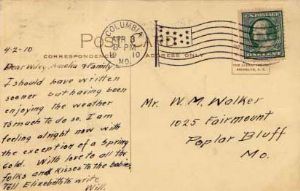 POST CARD
CORRESPONDENCE
ADDRESS ONLY
COLUMBIA
APR 3
PM
1910
MO.
4-2-10
Dear Wiley, Amelia & family
I should have written
sooner but having been
enjoying the weather
to much to do so. I am
feeling alright now with
the exception of a Spring
Cold. With love to all the
folks and kisses to the babies,
Tell Elizabeth to write
Will.
Mr. W. M. Walker
1025 Fairmount
Poplar Bluff
Mo.